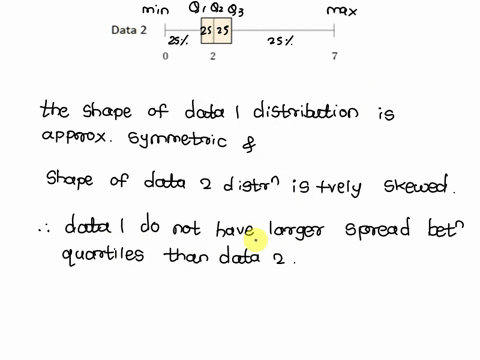 min Q1 Q2 Q3 max
Data 2 25% 25 25 25%
0 2 7
the shape of data 1 distribution is
approx. symmetric &
shape of data 2 distrⁿ is +vely skewed.
∴ data 1 do not have larger spread betⁿ
quartiles than data 2.